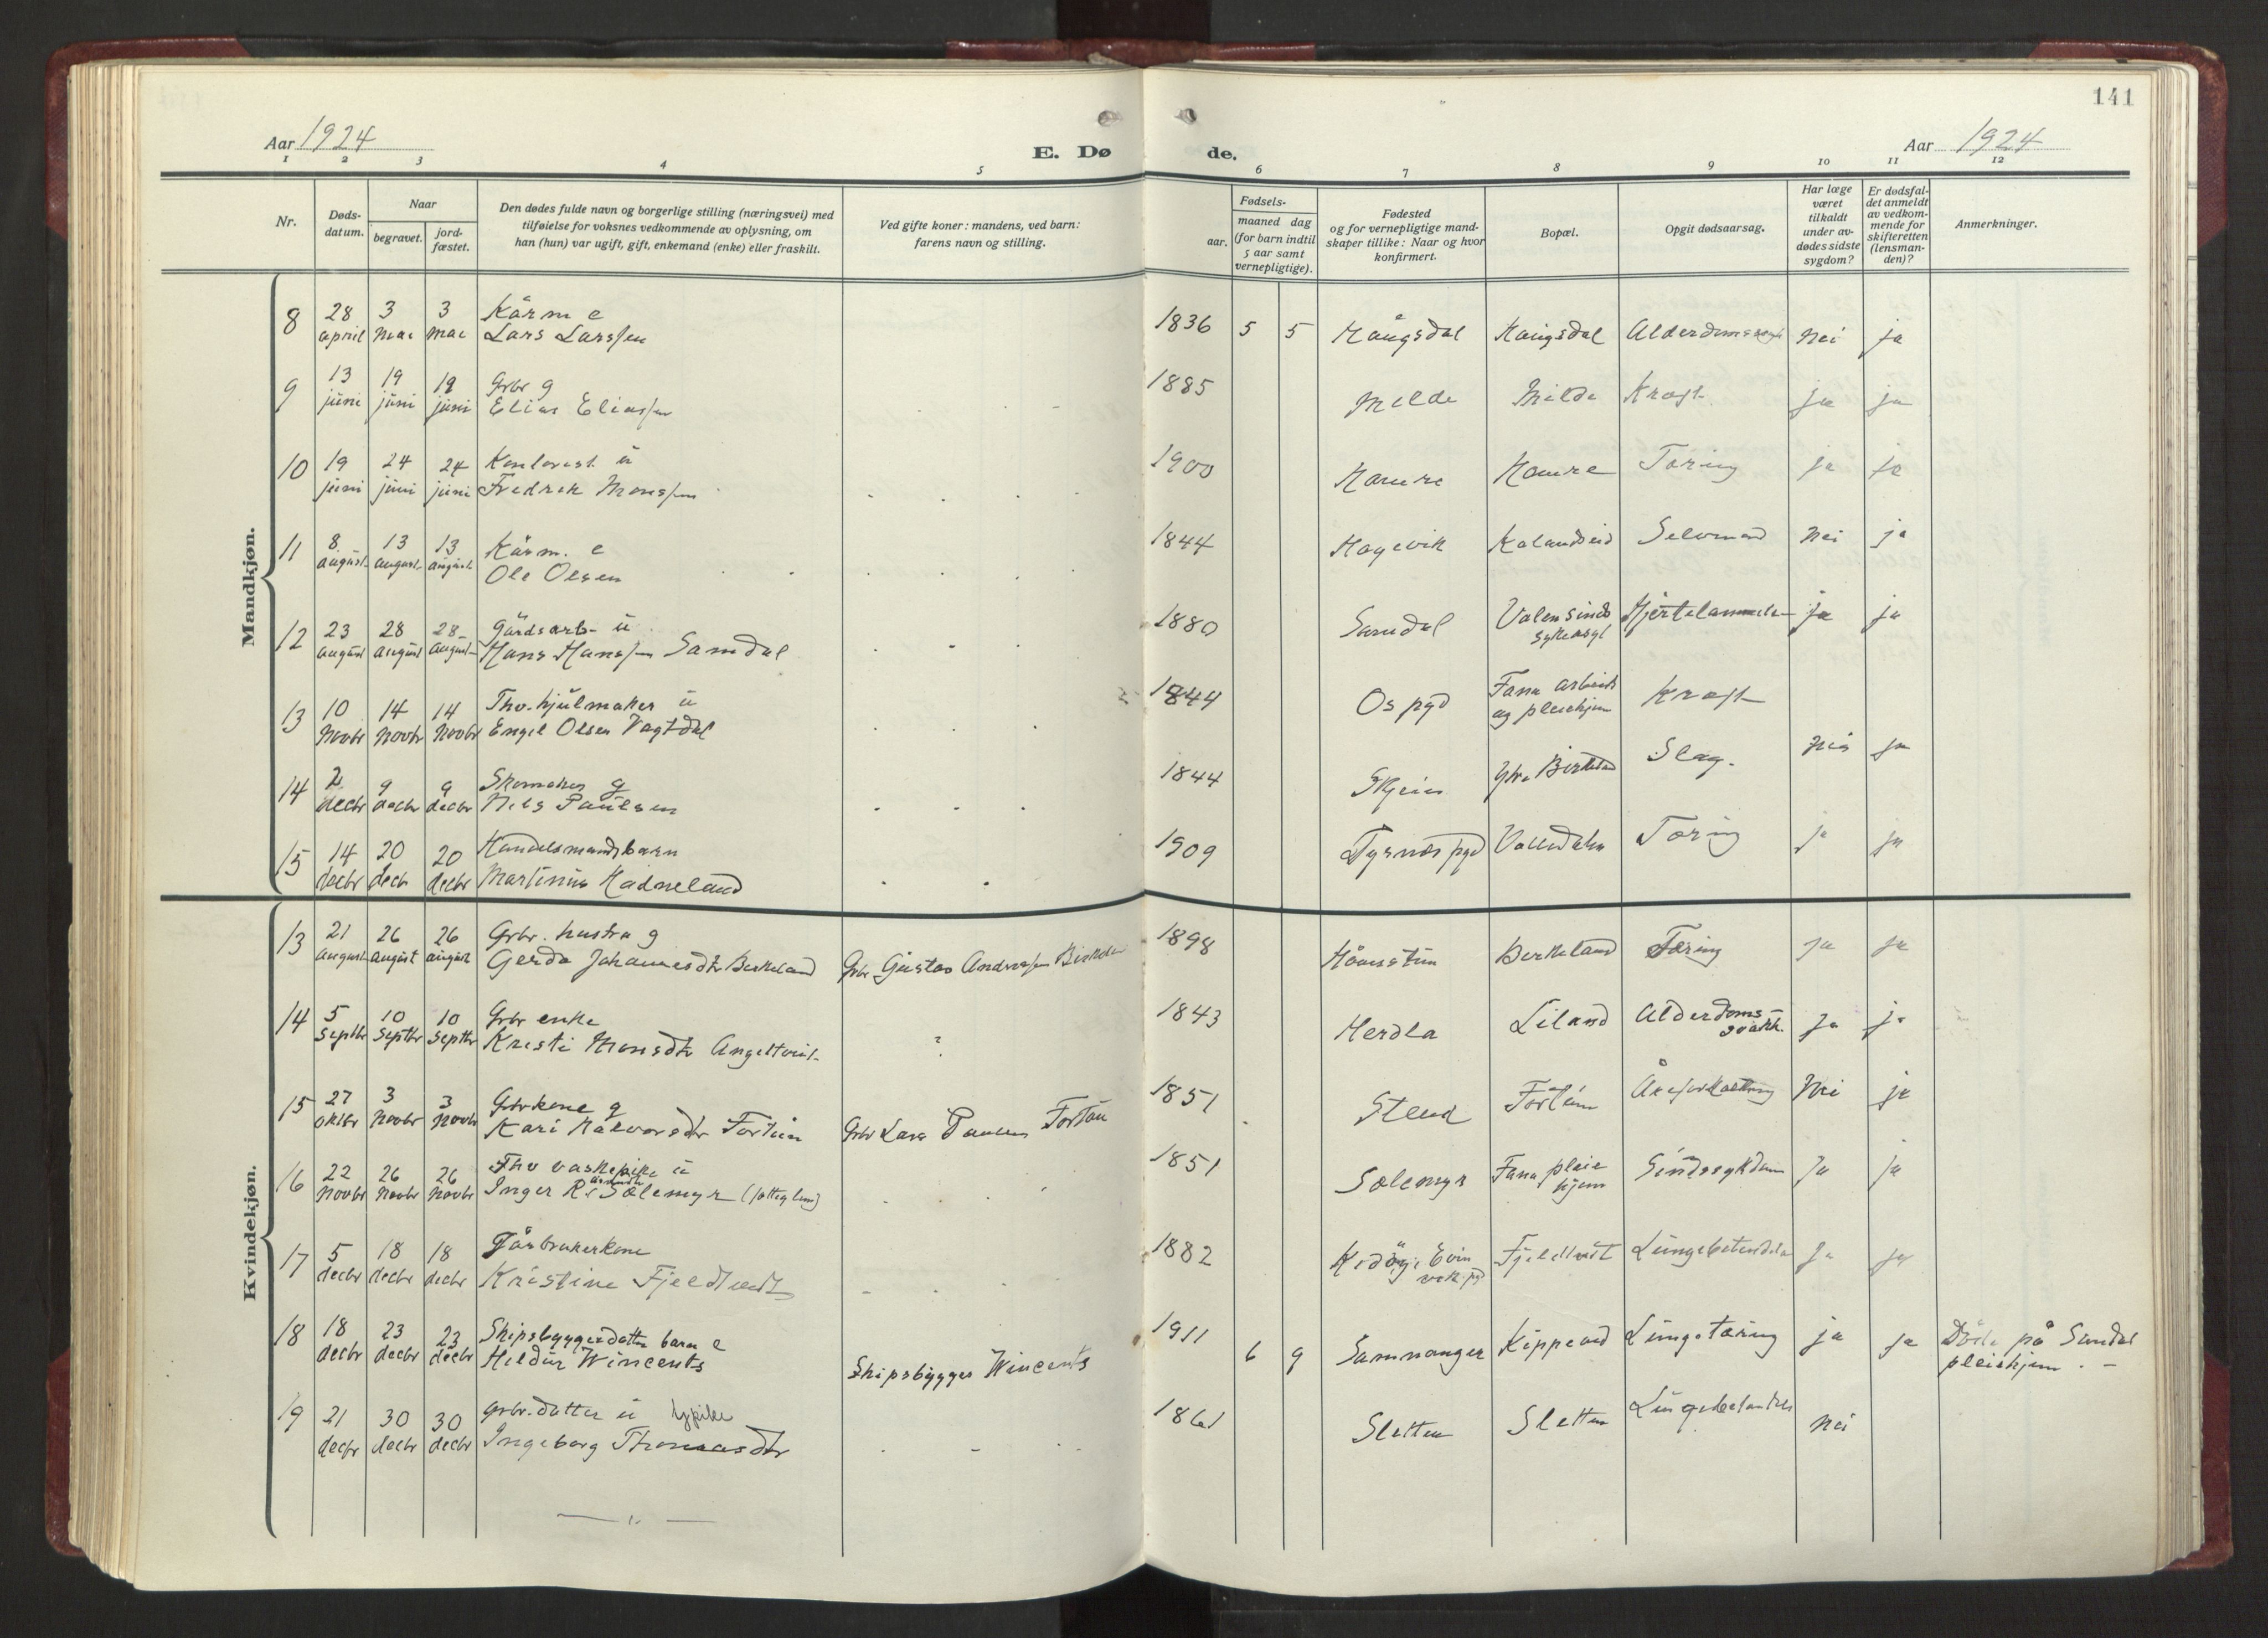 141
Aar 1924
E. Døde.
Aar 1924
1 2 3 4 5 6 7 8 9 10 11 12
Nr.
Døds-
datum.
Naar
begravet.
jord-
fæstet.
Den dødes fulde navn og borgerlige stilling (næringsvei) med
tilføielse for voksnes vedkommende av oplysning, om
han (hun) var ugift, gift, enkemand (enke) eller fraskilt.
Ved gifte koner: mandens, ved barn:
farens navn og stilling.
Fødsels-
aar.
maaned dag
(for barn indtil
5 aar samt
vernepligtige).
Fødested
og for vernepligtige mand-
skaper tillike: Naar og hvor
konfirmert.
Bopæl.
Opgit dødsaarsag.
Har læge
været
tilkaldt
under av-
dødes sidste
sygdom?
Er dødsfal-
det anmeldt
av vedkom-
mende for
skifteretten
(lensman-
den)?
Anmerkninger.
Mandkjøn.
8 28 april 3 mai 3 mai Kårm e
Lars Larssen 1836 5 5 Haugsdal Haugsdal nei ja
9 13 juni 19 juni 19 juni Grbr g
Elias Eliassen 1885 Milde Milde Kræft ja ja
10 19 juni 24 juni 24 juni ü
Fredrek Monssen 1900 Hamre Hamre Tæring ja ja
11 8 august 13 august 13 august Kårm. e
Ole Olsen 1844 Hagevik Kalandseid Selvmord nei ja
12 23 august 28 august 28 august Gårdsarb- ü
Hans Hanssen Samdal 1880 Samdal Valen sinds
sykeasyl ja ja
13 10 Novbr 14 Novbr 14 Novbr Fhv. hjülmaker ü
Engel Olsen Vagtdal 1844 Os pgd Fana arbeids
og pleiehjem Kræft
14 2 decbr 9 decbr 9 decbr Skomaker g
Nils Paülsen 1844 Skjeie Birkeland Slag. nei ja
15 14 decbr 20 decbr 20 decbr Handelsmandsbarn
Martinus Hadneland 1909 Tysnes pgd Tæring ja ja
Kvindekjøn.
13 21 august 26 august 26 august Grbr. hustru g
Gerda Johannesdtr Birkeland Grbr Güstav Andreassen Birkeland 1898 Birkeland Tæring ja ja
14 5 Septbr 10 Septbr 10 Septbr Grbr enke
Kristi Monsdtr Angeltveit ? 1843 Herdla Liland Alderdoms-
svakh. Ja ja
15 27 oktbr 3 Novbr 3 Novbr Grbrkone g
Kari Halvorsdtr Fortün Grbr Lars Paulsen Fortün 1851 Stend Fortün Åreforkalkning Nei ja
16 22 Novbr 26 Novbr 26 Novbr Fhv vaskepike ü
Inger R. Sælemyr (fattiglem) 1851 Sælemyr Fana pleie
hjem Sindssykdom Ja ja
17 5 decbr 18 decbr 18 decbr Gårbrukerkone
Kristine Fjeldtvedt 1882 Fjeldtvedt Lüngebetendelse Ja ja
18 18 decbr 23 decbr 23 decbr Skipsbyggerdatter barn e
Hildür Wincents Skipsbygger Wincents 1911 6 9 Samnanger Lüngetæring ja ja Døde på Sandal
pleiehjem. -
19 21 decbr 30 decbr 30 decbr Grbr. datter ü
Ingeborg Thomasdtr 1861 Sletten Sletten Lüngebetendelse nei